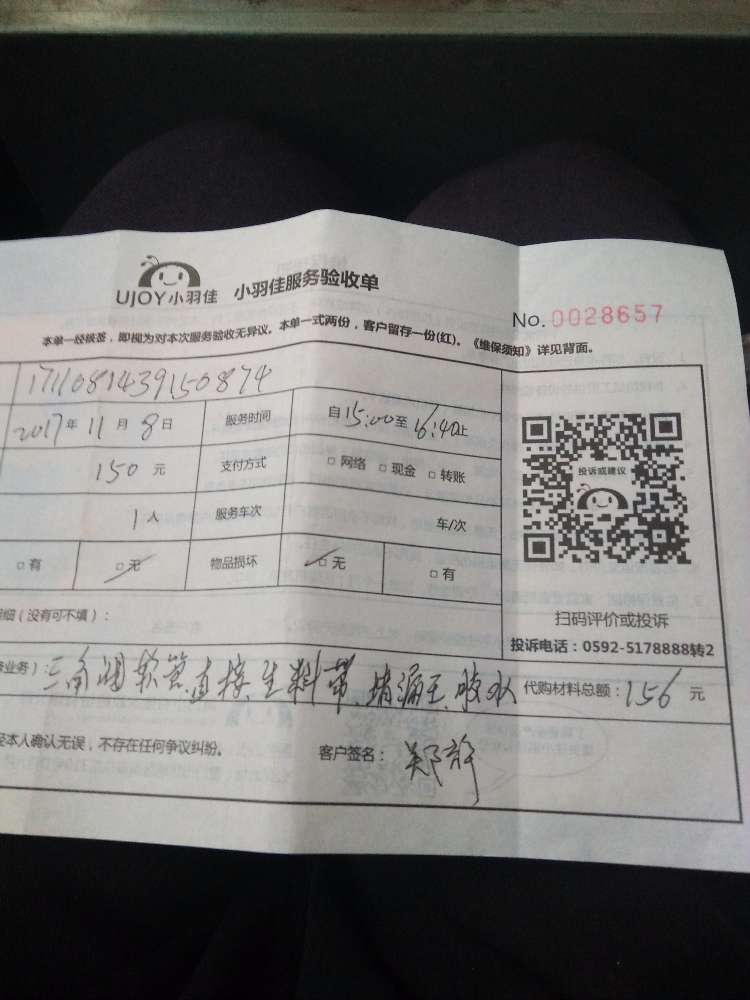 UJOY小羽佳 小羽佳服务验收单
No. 0028657
本单一经核签，即视为对本次服务验收无异议。本单一式两份，客户留存一份(红)。《维保须知》详见背面。
1711081439150874
2017年11月8日 服务时间 自15:00至16:40止
150元 支付方式 □网络 □现金 □转账
1人 服务车次 车/次
□有 □无 物品损坏 □无 □有
投诉或建议
扫码评价或投诉
投诉电话：0592-5178888转2
明细（没有可不填）：
务业务）：三角阀软管直接生料带、堵漏王、胶水 代购材料总额：156元
经本人确认无误，不存在任何争议纠纷。 客户签名：郑